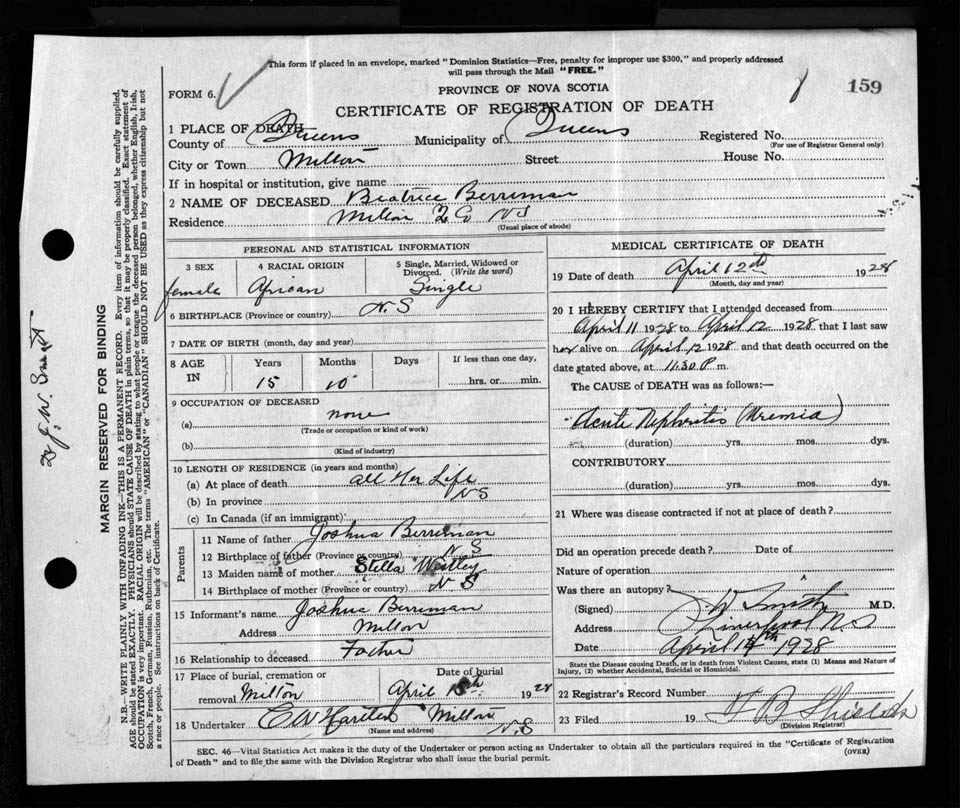 This form if placed in an envelope, marked "Dominion Statistics—Free, penalty for improper use $300," and properly addressed
will pass through the Mail "FREE."
FORM 6.
159
PROVINCE OF NOVA SCOTIA
CERTIFICATE OF REGISTRATION OF DEATH
1 PLACE OF DEATH
County of Queens Municipality of Queens Registered No.
(For use of Registrar General only)
City or Town Milton Street House No.
If in hospital or institution, give name
2 NAME OF DECEASED Beatrice Berriman
Residence Milton Q Co NS
(Usual place of abode)
PERSONAL AND STATISTICAL INFORMATION
3 SEX 4 RACIAL ORIGIN 5 Single, Married, Widowed or
Divorced. (Write the word)
female African Single
6 BIRTHPLACE (Province or country) N.S
7 DATE OF BIRTH (month, day and year)
8 AGE IN Years Months Days If less than one day,
15 10 hrs. or min.
9 OCCUPATION OF DECEASED
(a) none
(Trade or occupation or kind of work)
(b)
(Kind of industry)
10 LENGTH OF RESIDENCE (in years and months)
(a) At place of death all Her Life
(b) In province NS
(c) In Canada (if an immigrant)
Parents
11 Name of father Joshua Berriman
12 Birthplace of father (Province or country) N.S
13 Maiden name of mother Stella
14 Birthplace of mother (Province or country) N S
15 Informant's name Joshua Berriman
Address Milton
16 Relationship to deceased Father
17 Place of burial, cremation or Date of burial
removal Milton April 15th 1928
18 Undertaker Milton
(Name and address) N.S
MEDICAL CERTIFICATE OF DEATH
19 Date of death April 12th 1928
(Month, day and year)
20 I HEREBY CERTIFY that I attended deceased from
April 11 1928 to April 12 1928 that I last saw
her alive on April 12 1928 and that death occurred on the
date stated above, at 11.30 P. m.
The CAUSE of DEATH was as follows:—
Acute Nephritis (Uremia)
(duration) yrs. mos. dys.
CONTRIBUTORY
(duration) yrs. mos. dys.
21 Where was disease contracted if not at place of death?
Did an operation precede death? Date of
Nature of operation
Was there an autopsy?
(Signed) J W Smith M.D.
Address Liverpool N.S
Date April 14th 1928
State the Disease causing Death, or in death from Violent Causes, state (1) Means and Nature of
Injury, (2) whether Accidental, Suicidal or Homicidal.
22 Registrar's Record Number
23 Filed 19 F B Shields
(Division Registrar)
SEC. 46—Vital Statistics Act makes it the duty of the Undertaker or person acting as Undertaker to obtain all the particulars required in the "Certificate of Registration
of Death" and to file the same with the Division Registrar who shall issue the burial permit.
(OVER)
MARGIN RESERVED FOR BINDING
N.B.—WRITE PLAINLY WITH UNFADING INK—THIS IS A PERMANENT RECORD. Every item of information should be carefully supplied.
AGE should be stated EXACTLY. PHYSICIANS should STATE CAUSE OF DEATH in plain terms, so that it may be properly classified. Exact statement of
OCCUPATION is very important. RACIAL ORIGIN will be described by stating to what people or tongue the deceased person belonged, whether English, Irish,
Scotch, French, German, Russian, Ruthenian, etc. The terms "AMERICAN" or "CANADIAN" SHOULD NOT BE USED as they express citizenship but not
a race or people. See instructions on back of Certificate.